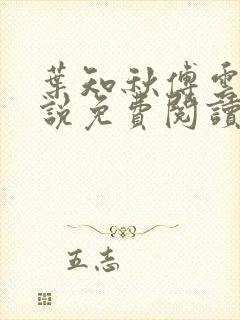 葉知秋傅雲
說免費閱讀
五志